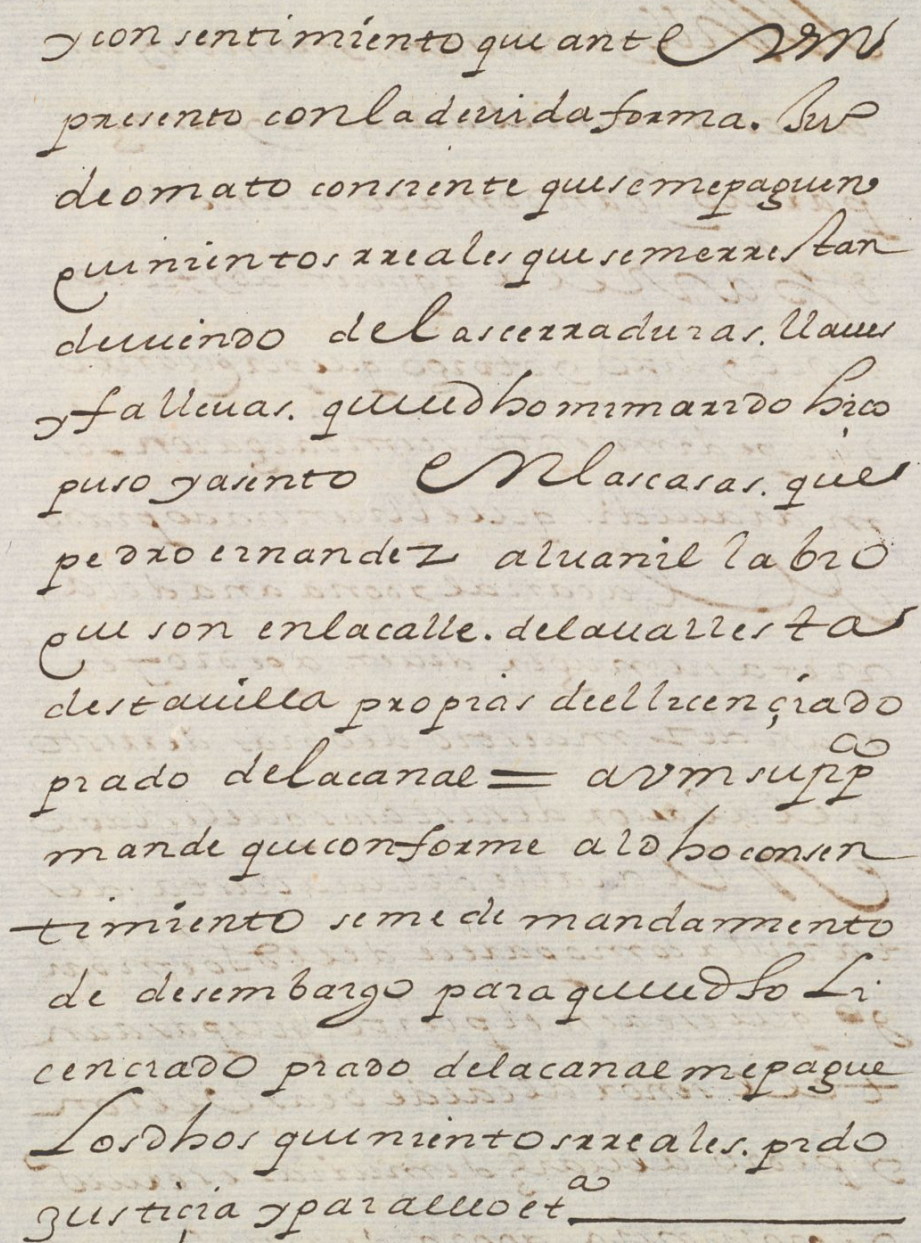 y consentimiento que ante Vm
presento con la devida forma. Ju°
de omato consiente que se me paguen
quinientos rreales que se me rrestan
deviendo de las cerraduras. llaves
y fallevas. que el dho mi marido hiço
puso y asento En las casas. que
pedro ernandez alvanil labro
que son en la calle. de la vallesta
desta villa propias de el licençiado
prado de la canal = a vm supp^co
mande que conforme al dho consen
timiento se me de mandamiento
de desembargo para que el dho Li
cenciado prado de la canal me pague
Los dhos quinientos rreales. pido
justiçia y para ello et^a